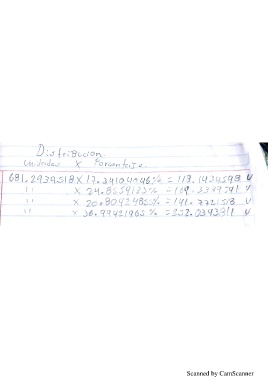 Distribucion
Unidades X Porcentaje
681.2939518 X 17.34104046% = 118.1434598 U
" X 24.8554133% = 169.3389541 U
" X 20.80924855% = 141.7721518 U
" X 36.99421965% = 252.0393811 U
Scanned by CamScanner